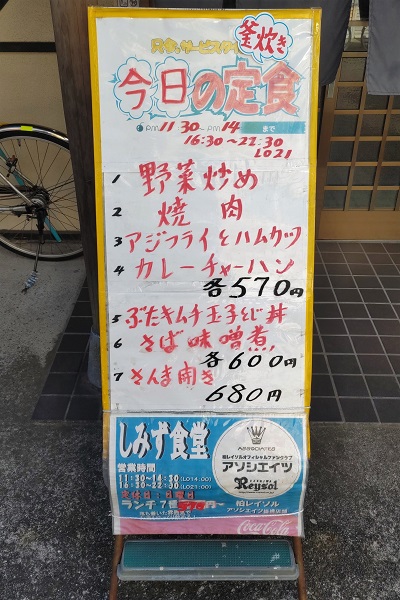 釜炊き
今日の定食
PM 11:30~PM 14 まで
16:30~22:30
LO21
1 野菜炒め
2 焼肉
3 アジフライとハムカツ
4 カレーチャーハン
各570円
5 ぶたキムチ玉子とじ丼
6 さば味噌煮
各600円
7 さんま開き
680円
しみず食堂
営業時間
11:30~14:30(LO14:00)
16:30~22:30(LO21:00)
定休日:日曜日
ランチ7種
円~
ASSOCIATES
柏レイソルオフィシャルファンクラブ
アソシエイツ
Reysol
柏レイソル
アソシエイツ提携店舗
Coca-Cola